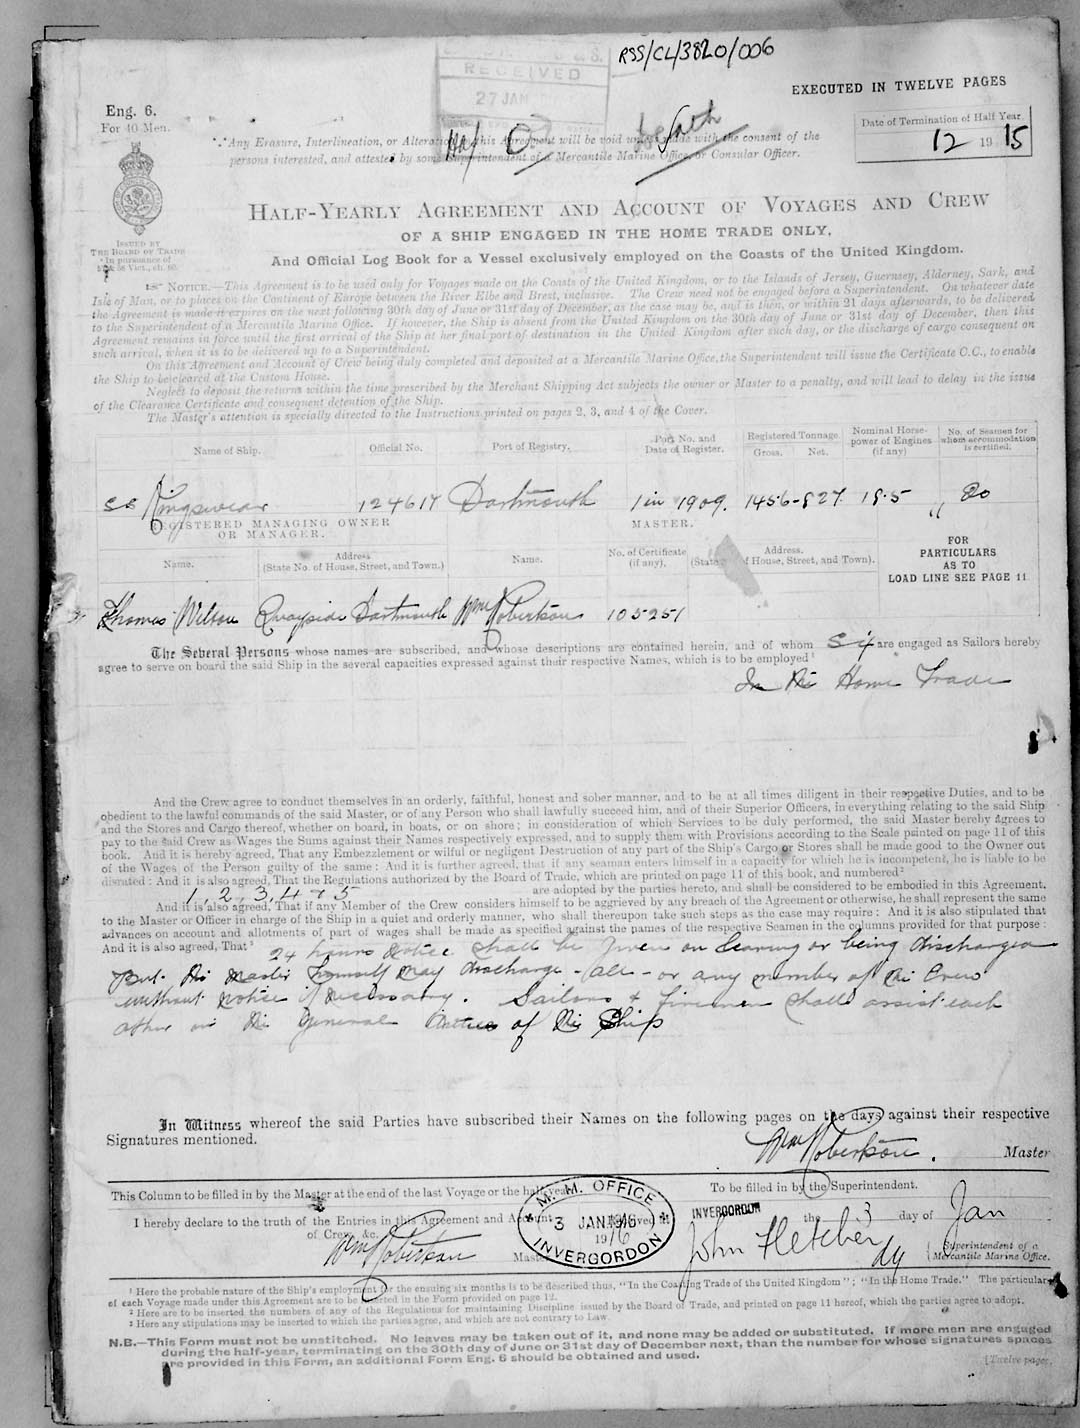 RSS/CL/3820/006
RECEIVED
27 JAN
EXECUTED IN TWELVE PAGES
Eng. 6.
For 40 Men.
Date of Termination of Half Year.
12 19 15
Any Erasure, Interlineation, or Alteration in this Agreement will be void unless made with the consent of the
persons interested, and attested by some Superintendent of a Mercantile Marine Office, or Consular Officer.
ISSUED BY
THE BOARD OF TRADE
In pursuance of
57 & 58 Vict., ch. 60.
HALF-YEARLY AGREEMENT AND ACCOUNT OF VOYAGES AND CREW
OF A SHIP ENGAGED IN THE HOME TRADE ONLY,
And Official Log Book for a Vessel exclusively employed on the Coasts of the United Kingdom.
NOTICE.—This Agreement is to be used only for Voyages made on the Coasts of the United Kingdom, or to the Islands of Jersey, Guernsey, Alderney, Sark, and
Isle of Man, or to places on the Continent of Europe between the River Elbe and Brest, inclusive. The Crew need not be engaged before a Superintendent. On whatever date
the Agreement is made it expires on the next following 30th day of June or 31st day of December, as the case may be, and is then, or within 21 days afterwards, to be delivered
to the Superintendent of a Mercantile Marine Office. If however, the Ship is absent from the United Kingdom on the 30th day of June or 31st day of December, then this
Agreement remains in force until the first arrival of the Ship at her final port of destination in the United Kingdom after such day, or the discharge of cargo consequent on
such arrival, when it is to be delivered up to a Superintendent.
On this Agreement and Account of Crew being duly completed and deposited at a Mercantile Marine Office, the Superintendent will issue the Certificate C.C., to enable
the Ship to be cleared at the Custom House.
Neglect to deposit the returns within the time prescribed by the Merchant Shipping Act subjects the owner or Master to a penalty, and will lead to delay in the issue
of the Clearance Certificate and consequent detention of the Ship.
The Master's attention is specially directed to the Instructions printed on pages 2, 3, and 4 of the Cover.
Name of Ship. Official No. Port of Registry. Port No. and Date of Register. Registered Tonnage. Gross. Net. Nominal Horse-power of Engines (if any) No. of Seamen for whom accommodation is certified.
SS Kingswear 124617 Dartmouth 1 in 1909. 1456-827 185 " 20
REGISTERED MANAGING OWNER OR MANAGER. MASTER.
Name. Address (State No. of House, Street, and Town.) Name. No. of Certificate (if any). Address. of House, Street, and Town).
FOR
PARTICULARS
AS TO
LOAD LINE SEE PAGE 11
Thomas Wilson Quayside Dartmouth Wm Robertson 105251
The Several Persons whose names are subscribed, and whose descriptions are contained herein, and of whom Six are engaged as Sailors hereby
agree to serve on board the said Ship in the several capacities expressed against their respective Names, which is to be employed¹
In the Home Trade
And the Crew agree to conduct themselves in an orderly, faithful, honest and sober manner, and to be at all times diligent in their respective Duties, and to be
obedient to the lawful commands of the said Master, or of any Person who shall lawfully succeed him, and of their Superior Officers, in everything relating to the said Ship
and the Stores and Cargo thereof, whether on board, in boats, or on shore; in consideration of which Services to be duly performed, the said Master hereby agrees to
pay to the said Crew as Wages the Sums against their Names respectively expressed, and to supply them with Provisions according to the Scale printed on page 11 of this
book. And it is hereby agreed, That any Embezzlement or wilful or negligent Destruction of any part of the Ship's Cargo or Stores shall be made good to the Owner out
of the Wages of the Person guilty of the same: And it is further agreed, that if any seaman enters himself in a capacity for which he is incompetent, he is liable to be
disrated: And it is also agreed, That the Regulations authorized by the Board of Trade, which are printed on page 11 of this book, and numbered²
1, 2, 3, 4 + 5 are adopted by the parties hereto, and shall be considered to be embodied in this Agreement.
And it is also agreed, That if any Member of the Crew considers himself to be aggrieved by any breach of the Agreement or otherwise, he shall represent the same
to the Master or Officer in charge of the Ship in a quiet and orderly manner, who shall thereupon take such steps as the case may require: And it is also stipulated that
advances on account and allotments of part of wages shall be made as specified against the names of the respective Seamen in the columns provided for that purpose:
And it is also agreed, That³ 24 hours notice shall be given on leaving or being discharged
But the Master himself may discharge - all - or any member of the Crew
without notice if necessary. Sailors & firemen shall assist each
other in the general duties of the Ship
In Witness whereof the said Parties have subscribed their Names on the following pages on the days against their respective
Signatures mentioned.
Wm Robertson. Master
This Column to be filled in by the Master at the end of the last Voyage or the half-year. To be filled in by the Superintendent.
I hereby declare to the truth of the Entries in this Agreement and Account
of Crew, &c.
Wm Robertson Master
M. M. OFFICE
3 JAN 1916
INVERGORDON
INVERGORDON the 3 day of Jan
John Fletcher dy Superintendent of a Mercantile Marine Office.
¹ Here the probable nature of the Ship's employment for the ensuing six months is to be described thus, "In the Coasting Trade of the United Kingdom"; "In the Home Trade." The particulars
of each Voyage made under this Agreement are to be inserted in the Form provided on page 12.
² Here are to be inserted the numbers of any of the Regulations for maintaining Discipline issued by the Board of Trade, and printed on page 11 hereof, which the parties agree to adopt.
³ Here any stipulations may be inserted to which the parties agree, and which are not contrary to Law.
N.B.—This Form must not be unstitched. No leaves may be taken out of it, and none may be added or substituted. If more men are engaged
during the half-year, terminating on the 30th day of June or 31st day of December next, than the number for whose signatures spaces
are provided in this Form, an additional Form Eng. 6 should be obtained and used.
[Twelve pages.